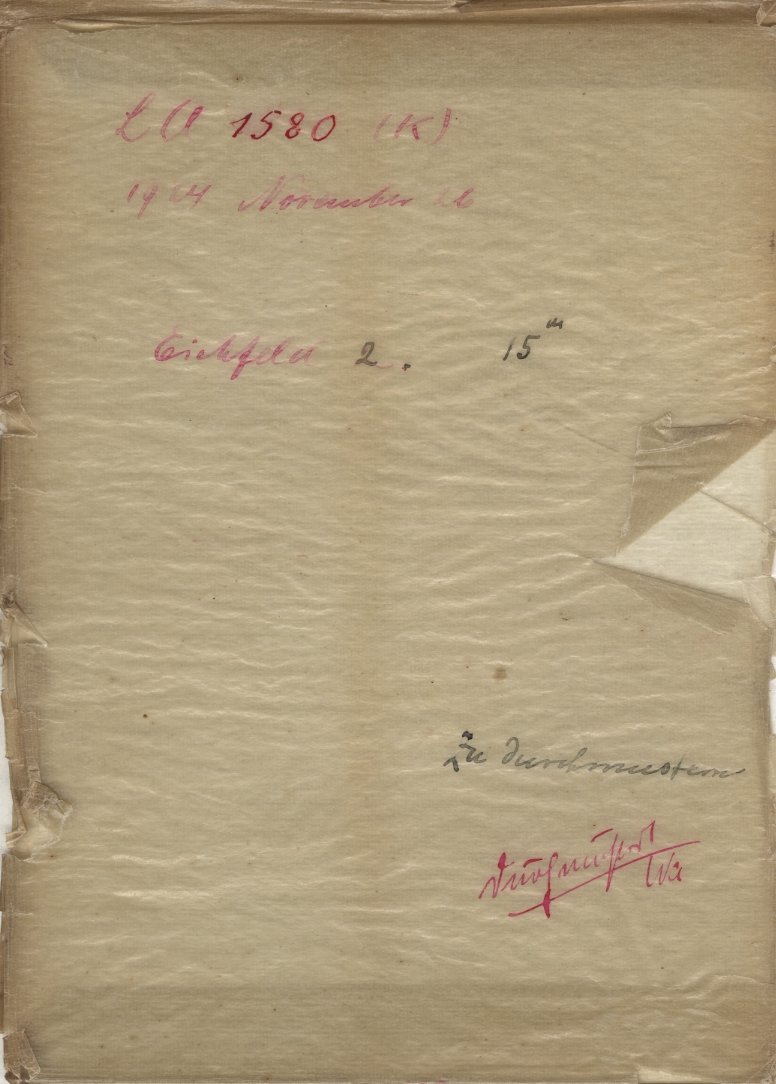 LA 1580 (K)
1924 November 26
Eichfeld 2. 15ᵐ
Zu durchmustern
durchmustert